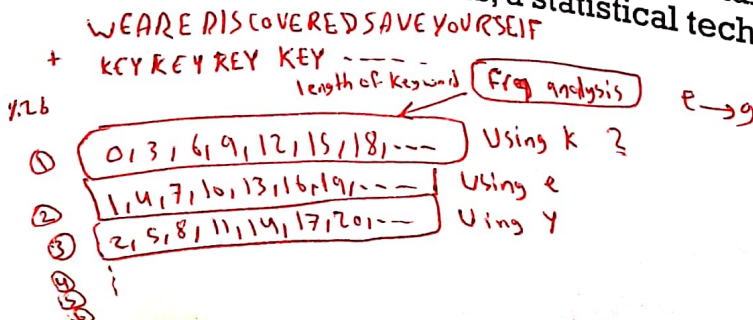 a statistical tech
WEARE DISCOVERED SAVE YOURSELF
+ KEY KEY KEY KEY -----
length of keyword Freq analysis e→g
%26
① 0,3,6,9,12,15,18,--- Using k ?
② 1,4,7,10,13,16,19,--- Using e
③ 2,5,8,11,14,17,20,--- Uing Y
④
⑤
⑥